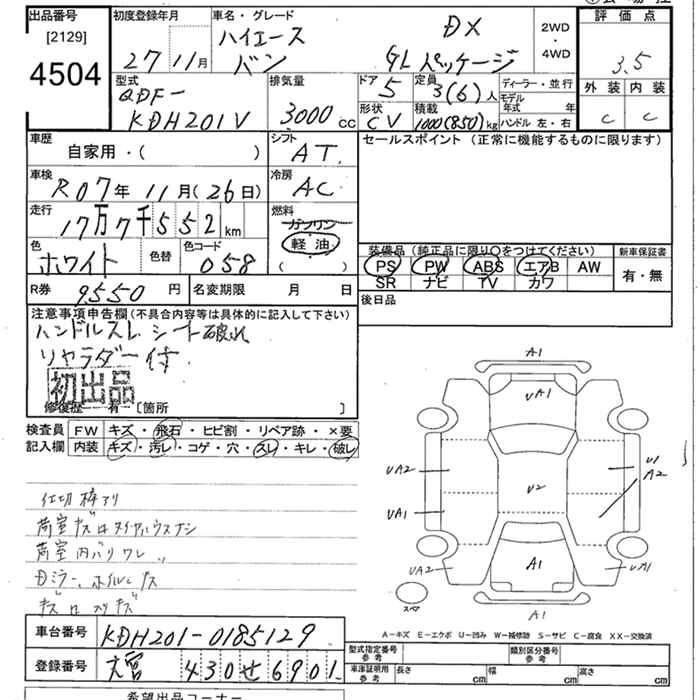 出品番号 初度登録年月 車名・グレード 評価点
[2129]
4504
27年11月 ハイエース バン DX GLパッケージ 2WD ・ 4WD
3.5
型式 排気量 ドア 定員 ディーラー・並行 外装 内装
QDF- KDH201V 3000cc 5 3(6)人 モデル年式 年
形状 積載 ハンドル 左・右 C C
CV 1000(850)kg
車歴 シフト セールスポイント (正常に機能するものに限ります)
自家用・( ) AT
車検 冷房
R07年11月(26日) AC
走行 燃料
17万7千552km ガソリン
軽油
( )
色 色替 色コード
ホワイト 058
装備品 (純正品に限り○をつけてください) 新車保証書
PS PW ABS エアB AW 有・無
SR ナビ TV カワ
R券 9550円 名変期限 月 日
後日品
注意事項申告欄(不具合内容等は具体的に記入して下さい)
ハンドルスレ シート破れ
リヤラダー付
初出品
修復歴 有・[箇所 ]
検査員 FW キズ・飛石・ヒビ割・リペア跡・×要
記入欄 内装 キズ・汚レ・コゲ・穴・スレ・キレ・破レ
仕切枠アリ
荷室キズ
荷室内バリワレ
Dミラー、ホイルキズ
A1
UA1
UA2 U1
A2
U2
UA1
A1
UA2 UA1
スペア A1
A-キズ E-エクボ U-凹み W-補修跡 S-サビ C-腐食 XX-交換済
車台番号 KDH201-0185129
型式指定番号 参考 類別区分番号 参考
登録番号 大宮 430せ6901
車庫証明用 参考 長さ cm 幅 cm 高さ cm
希望出品コーナー